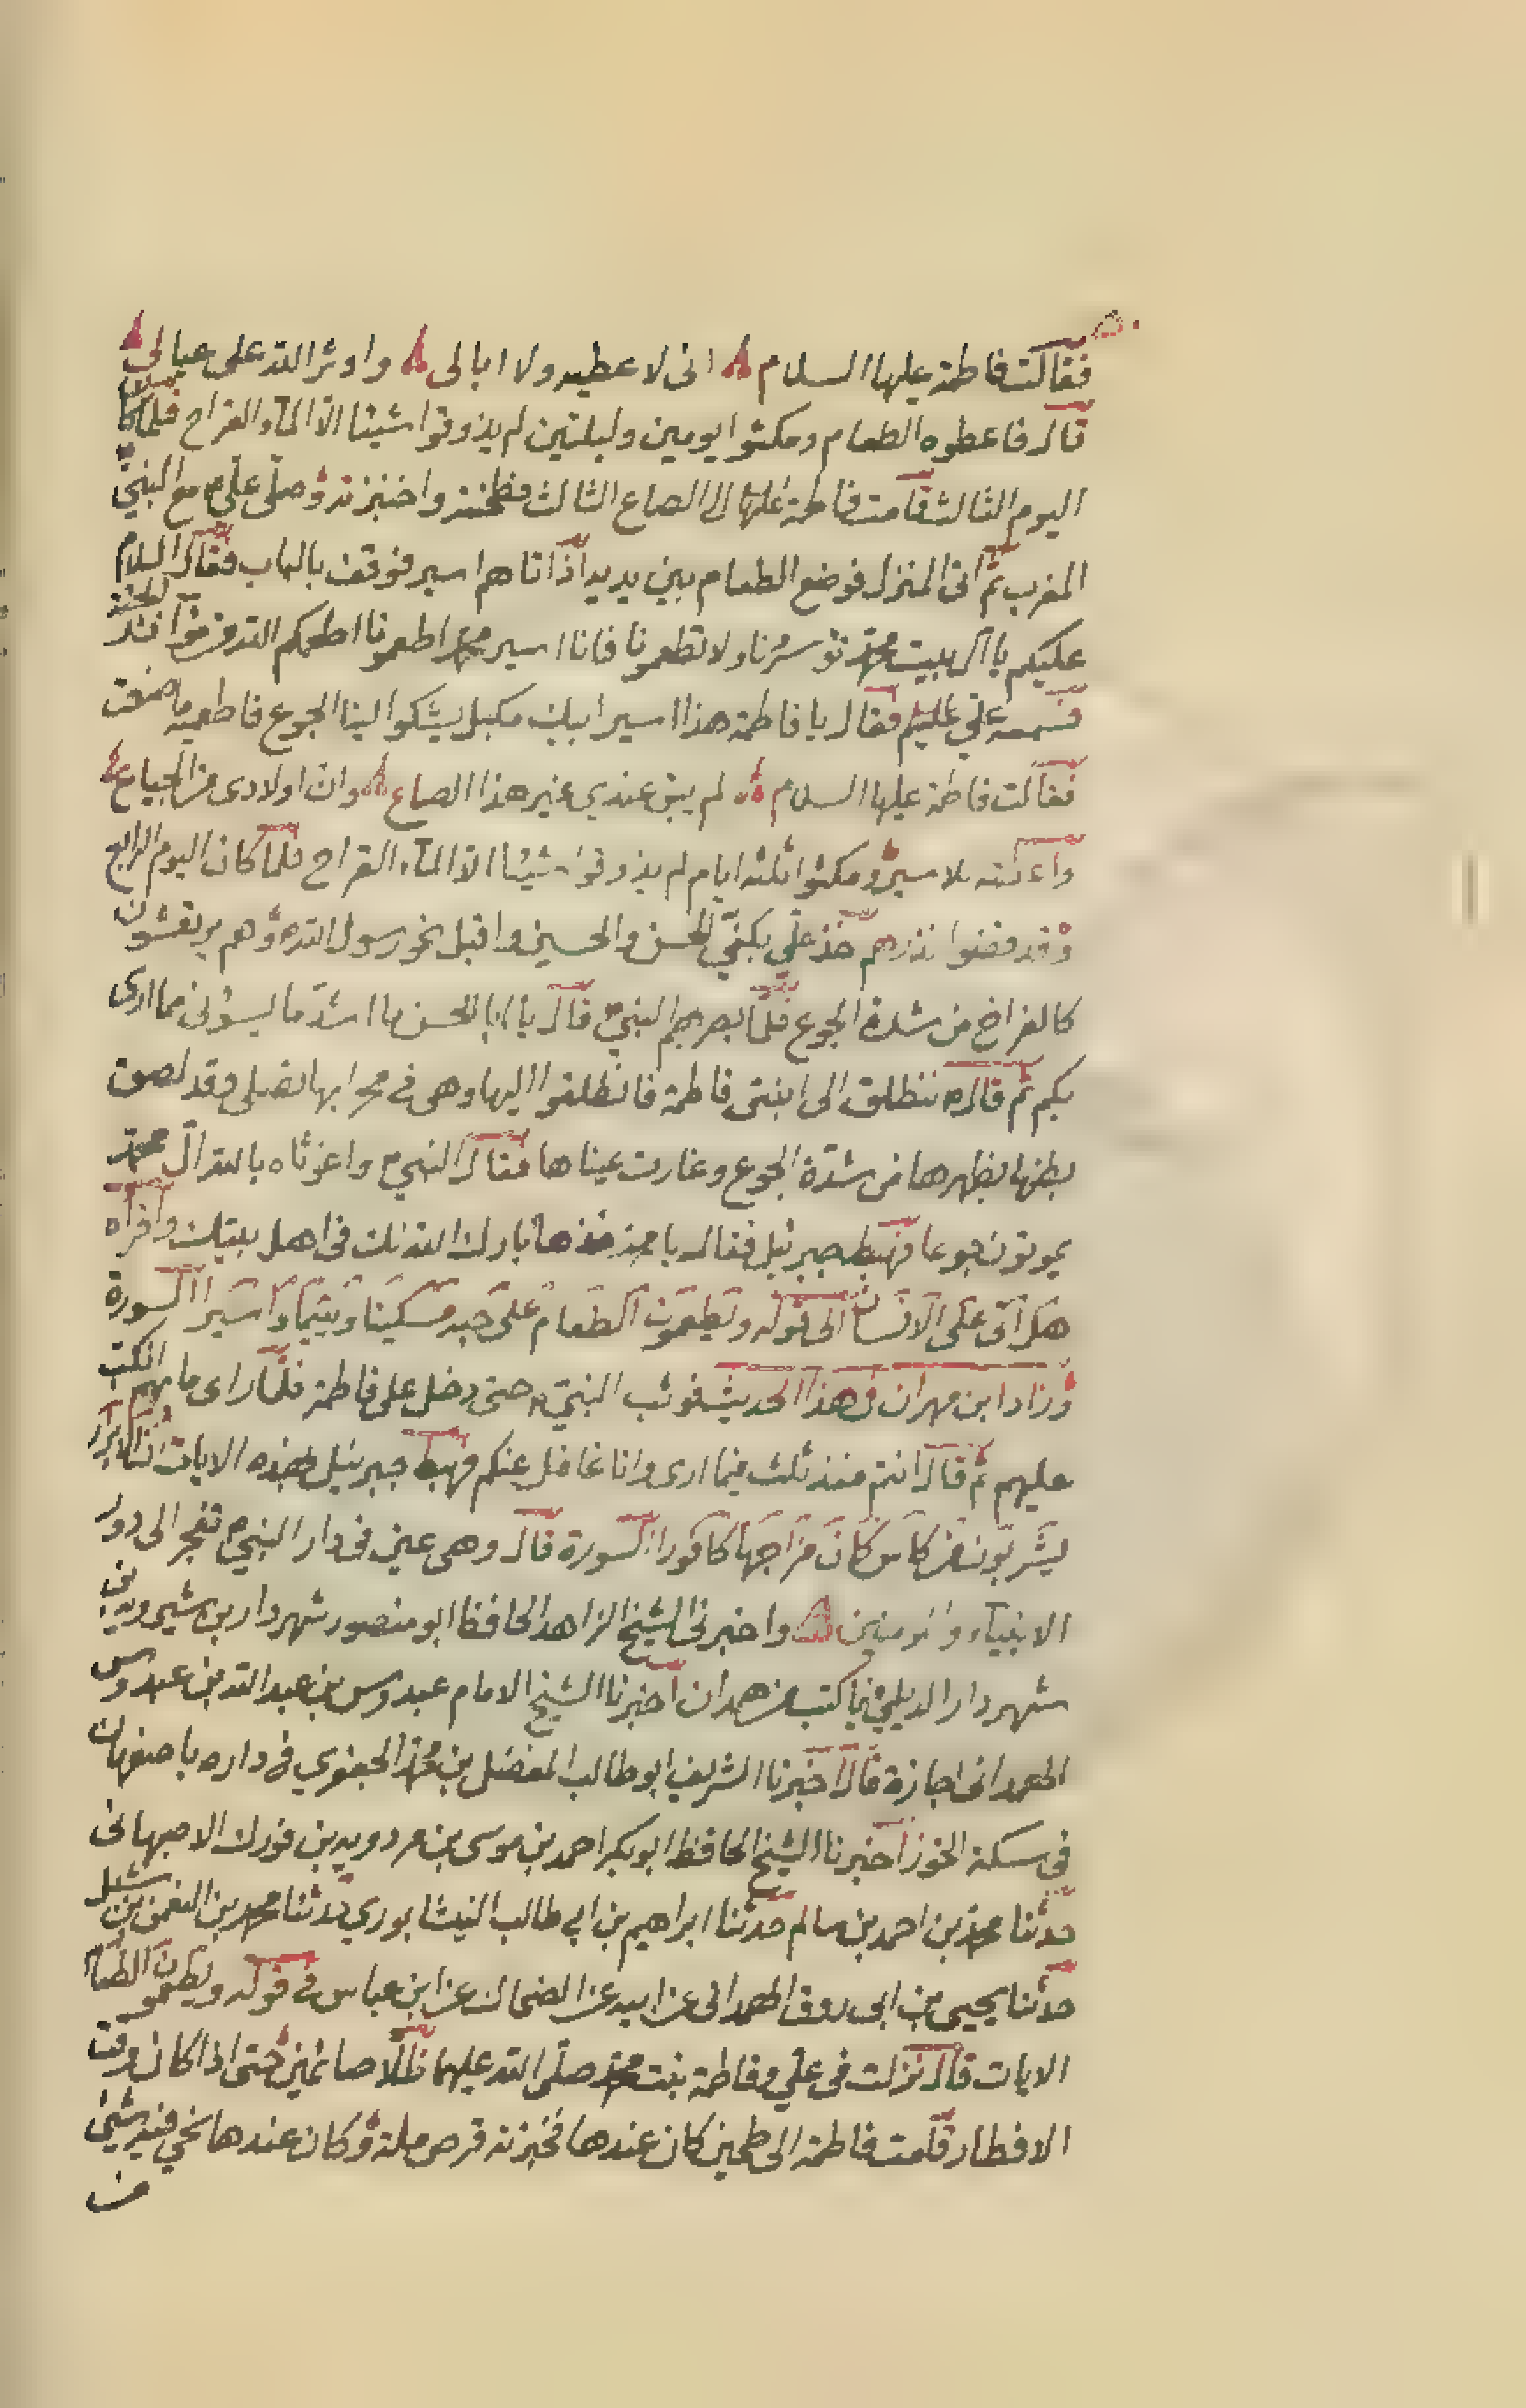 فقالت فاطمة عليها السلام انى لاعطيه ولا ابالى واوثر الله على عيالى
قال فاعطوه الطعام ومكثوا يومين وليلتين لم يذوقوا شيئا الا المآء القراح فلما كان
اليوم الثالث قامت فاطمة عليها الى الصاع الثالث فطحنته واختبزته وصلى على مع النبي
المغرب ثم اتى المنزل فوضع الطعام بين يديه اذ اتاهم اسير فوقف بالباب فقال السلام
عليكم يا آل بيت محمد تؤسرونا ولا تطعمونا فانا اسير محمد اطعمونا اطعمكم الله من موائد الجنة
فسمعه علي عليه فقال يا فاطمة هذا اسير ابيك مكبل يشكو الينا الجوع فاطعميه ما صنعت
فقالت فاطمة عليها السلام لم يبق عندي غير هذا الصاع وان اولادى من الجياع
واعطته للاسير ومكثوا ثلثة ايام لم يذوقوا شيئا الا المآء القراح فلما كان اليوم الرابع
وقد قضوا نذرهم اخذ علي بكفي الحسن والحسين واقبل نحو رسول الله وهم يرتعشون
كالفراخ من شدة الجوع فلما بصر بهم النبي قال يا ابا الحسن ما اشد ما يسؤنى مما ارى
بكم ثم قال ننطلق الى ابنتى فاطمة فانطلقوا اليها وهى في محرابها تصلى وقد لصق
بطنها بظهرها من شدة الجوع وغارت عيناها فقال النبي واغوثاه بالله آل محمد
يموتون جوعا فهبط جبرئيل فقال يا محمد خذها بارك الله لك فى اهل بيتك واقراه
هل اتى على الانسان الى قوله ويطعمون الطعام على حبه مسكينا ويتيما واسيرا السورة
وزاد ابن مهران فى هذا الحديث فوثب النبي حتى دخل على فاطمة فلما راى ما بهم انكب
عليهم ثم قال انتم منذ ثلث فيما ارى وانا غافل عنكم فهبط جبرئيل بهذه الايات ان الابرار
يشربون من كاس كان مزاجها كافورا السورة قال وهى عين فى دار النبي تفجر الى دور
الانبيآء والمؤمنين واخبرنى الشيخ الزاهد الحافظ ابو منصور شهردار بن شيرويه بن
شهردار الديلمي فيما كتب من همدان اخبرنا الشيخ الامام عبدوس بن عبد الله بن عبدوس
الهمدانى اجازة قال اخبرنا الشريف ابو طالب المفضل بن محمد الجعفري فى داره باصفهان
فى سكة الخوز اخبرنا الشيخ الحافظ ابو بكر احمد بن موسى بن مردويه بن فورك الاصبهانى
حدثنا محمد بن احمد بن سالم حدثنا ابراهيم بن ابي طالب النيشابوري حدثنا محمد بن النعمن بن شبل
حدثنا يحيى بن ابى روق الهمدانى عن ابيه عن الضحاك عن ابن عباس في قوله ويطعمون الطعام
الايات قال نزلت فى علي وفاطمة بنت محمد صلى الله عليهما ظلا صائمين حتى اذا كان وقت
الافطار قامت فاطمة الى طحين كان عندها فخبزته قرص ملة وكان عندها نحي فيه شيئ
من